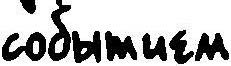 событием